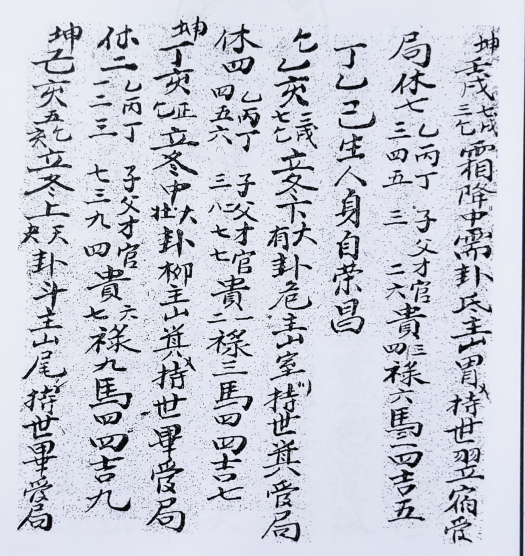 坤壬戌七三戌乞霜降中需卦氐主山胃持世翌宿受
局休七乙丙丁三四五子父才官三二六貴三四祿六馬二四吉五
丁乙己生人身自荣昌
乞乙亥三七戌乞立冬下大有卦危主山室持世箕受局
休四乙丙丁四五六子父才官三八七七貴一二祿三馬四四吉七
坤丁亥正乞立冬中大壮卦柳主山箕持世畢受局
休二乙丙丁一二三子父才官七三九四貴六七祿九馬四四吉九
坤己亥五乞六立冬上天夬卦斗主山尾持世畢受局